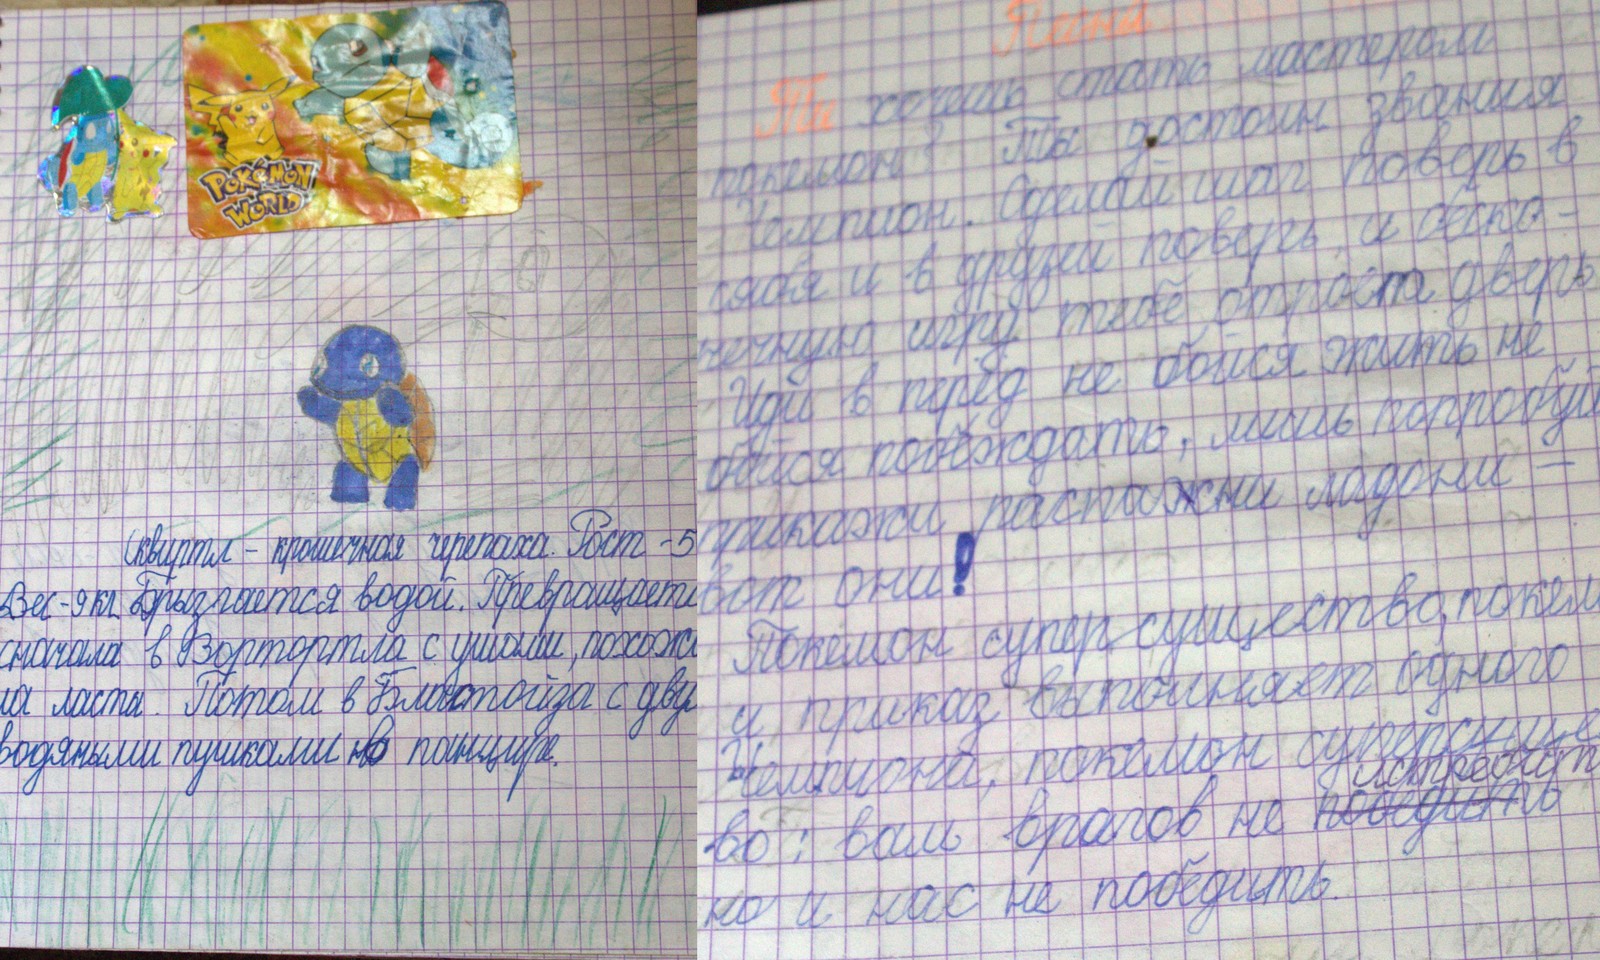 POKéMON
WORLD
Сквиртл - крошечная черепаха. Рост - 5
Вес - 9 кг. Брызгается водой. Превращаетс
сначала в Вортортла с ушами, похожи
на ласты. Потом в Бластойза с двум
водяными пушками на панцире.
Песни
Ты хочешь стать мастером
покемон? Ты достоин звания
Чемпион. Сделай шаг поверь в
себя и в друзей поверь, и беско-
нечную игру тебе откроет дверь
Иди в перёд не бойся жить не
бойся побеждать, лишь попробуй
прикажи растожми ладони -
вот они!
Покемон супер существо, покем
и приказ выполняет одного
Чемпиона, покемон суперсуще
истребить
во: вам врагов не победить
но и нас не победить.